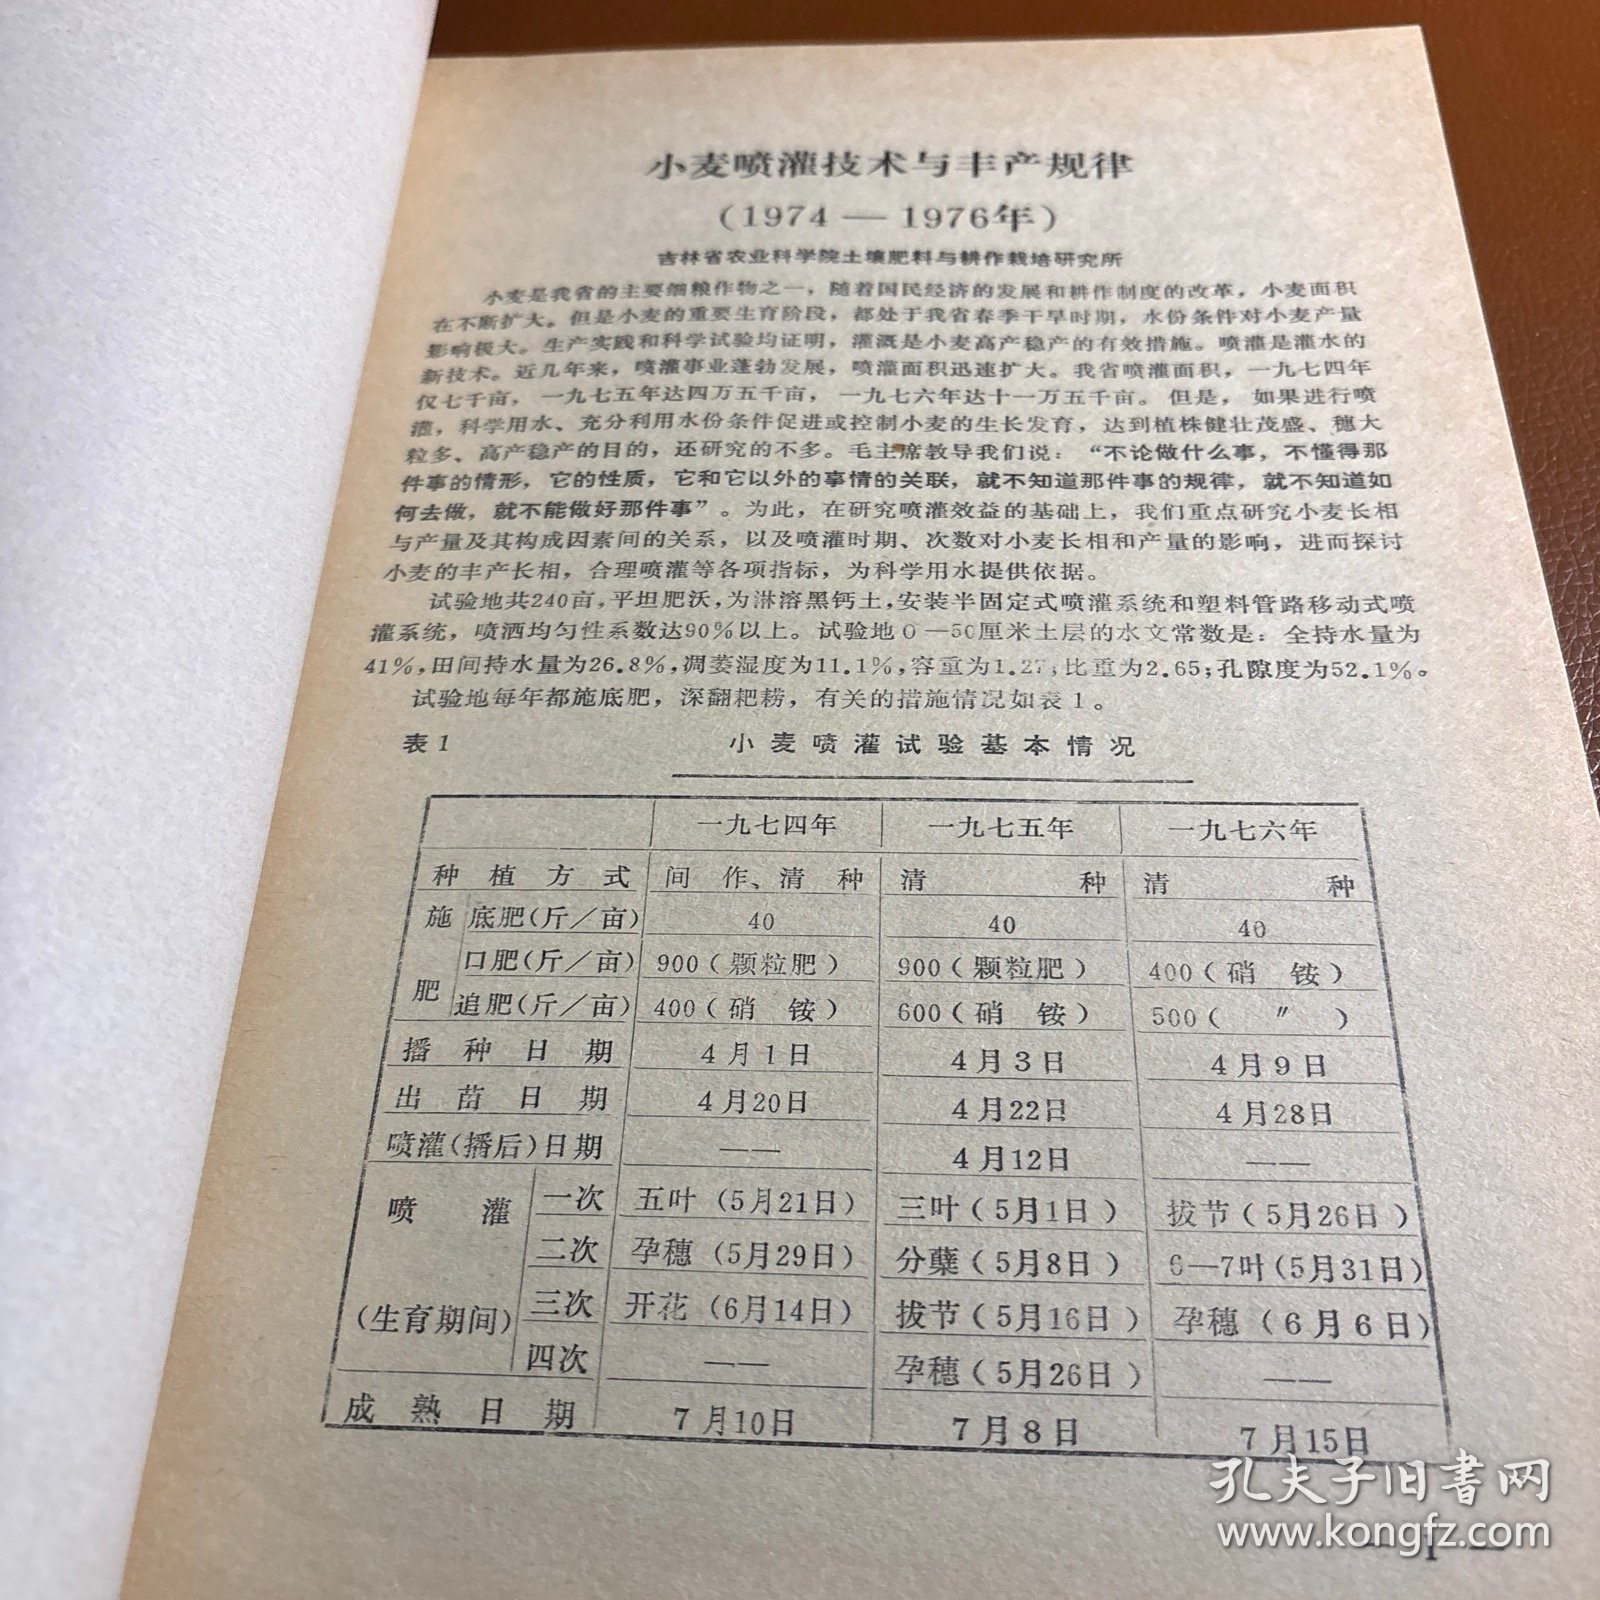 小麦喷灌技术与丰产规律
（1974 — 1976年）
吉林省农业科学院土壤肥料与耕作栽培研究所
小麦是我省的主要细粮作物之一，随着国民经济的发展和耕作制度的改革，小麦面积
在不断扩大。但是小麦的重要生育阶段，都处于我省春季干旱时期，水份条件对小麦产量
影响极大。生产实践和科学试验均证明，灌溉是小麦高产稳产的有效措施。喷灌是灌水的
新技术。近几年来，喷灌事业蓬勃发展，喷灌面积迅速扩大。我省喷灌面积，一九七四年
仅七千亩，一九七五年达四万五千亩，一九七六年达十一万五千亩。但是，如果进行喷
灌，科学用水、充分利用水份条件促进或控制小麦的生长发育，达到植株健壮茂盛、穗大
粒多、高产稳产的目的，还研究的不多。毛主席教导我们说：“不论做什么事，不懂得那
件事的情形，它的性质，它和它以外的事情的关联，就不知道那件事的规律，就不知道如
何去做，就不能做好那件事”。为此，在研究喷灌效益的基础上，我们重点研究小麦长相
与产量及其构成因素间的关系，以及喷灌时期、次数对小麦长相和产量的影响，进而探讨
小麦的丰产长相，合理喷灌等各项指标，为科学用水提供依据。
试验地共240亩，平坦肥沃，为淋溶黑钙土，安装半固定式喷灌系统和塑料管路移动式喷
灌系统，喷洒均匀性系数达90%以上。试验地0—50厘米土层的水文常数是：全持水量为
41%，田间持水量为26.8%，凋萎湿度为11.1%，容重为1.27；比重为2.65；孔隙度为52.1%。
试验地每年都施底肥，深翻耙耢，有关的措施情况如表1。
表1 小麦喷灌试验基本情况
一九七四年 一九七五年 一九七六年
种植方式 间作、清种 清种 清种
施肥 底肥（斤／亩） 40 40 40
口肥（斤／亩） 900（颗粒肥） 900（颗粒肥） 400（硝铵）
追肥（斤／亩） 400（硝铵） 600（硝铵） 500（〃）
播种日期 4月1日 4月3日 4月9日
出苗日期 4月20日 4月22日 4月28日
喷灌（播后）日期 —— 4月12日 ——
喷灌（生育期间） 一次 五叶（5月21日） 三叶（5月1日） 拔节（5月26日）
二次 孕穗（5月29日） 分蘖（5月8日） 6—7叶（5月31日）
三次 开花（6月14日） 拔节（5月16日） 孕穗（6月6日）
四次 —— 孕穗（5月26日） ——
成熟日期 7月10日 7月8日 7月15日
孔夫子旧书网
www.kongfz.com
— 1 —